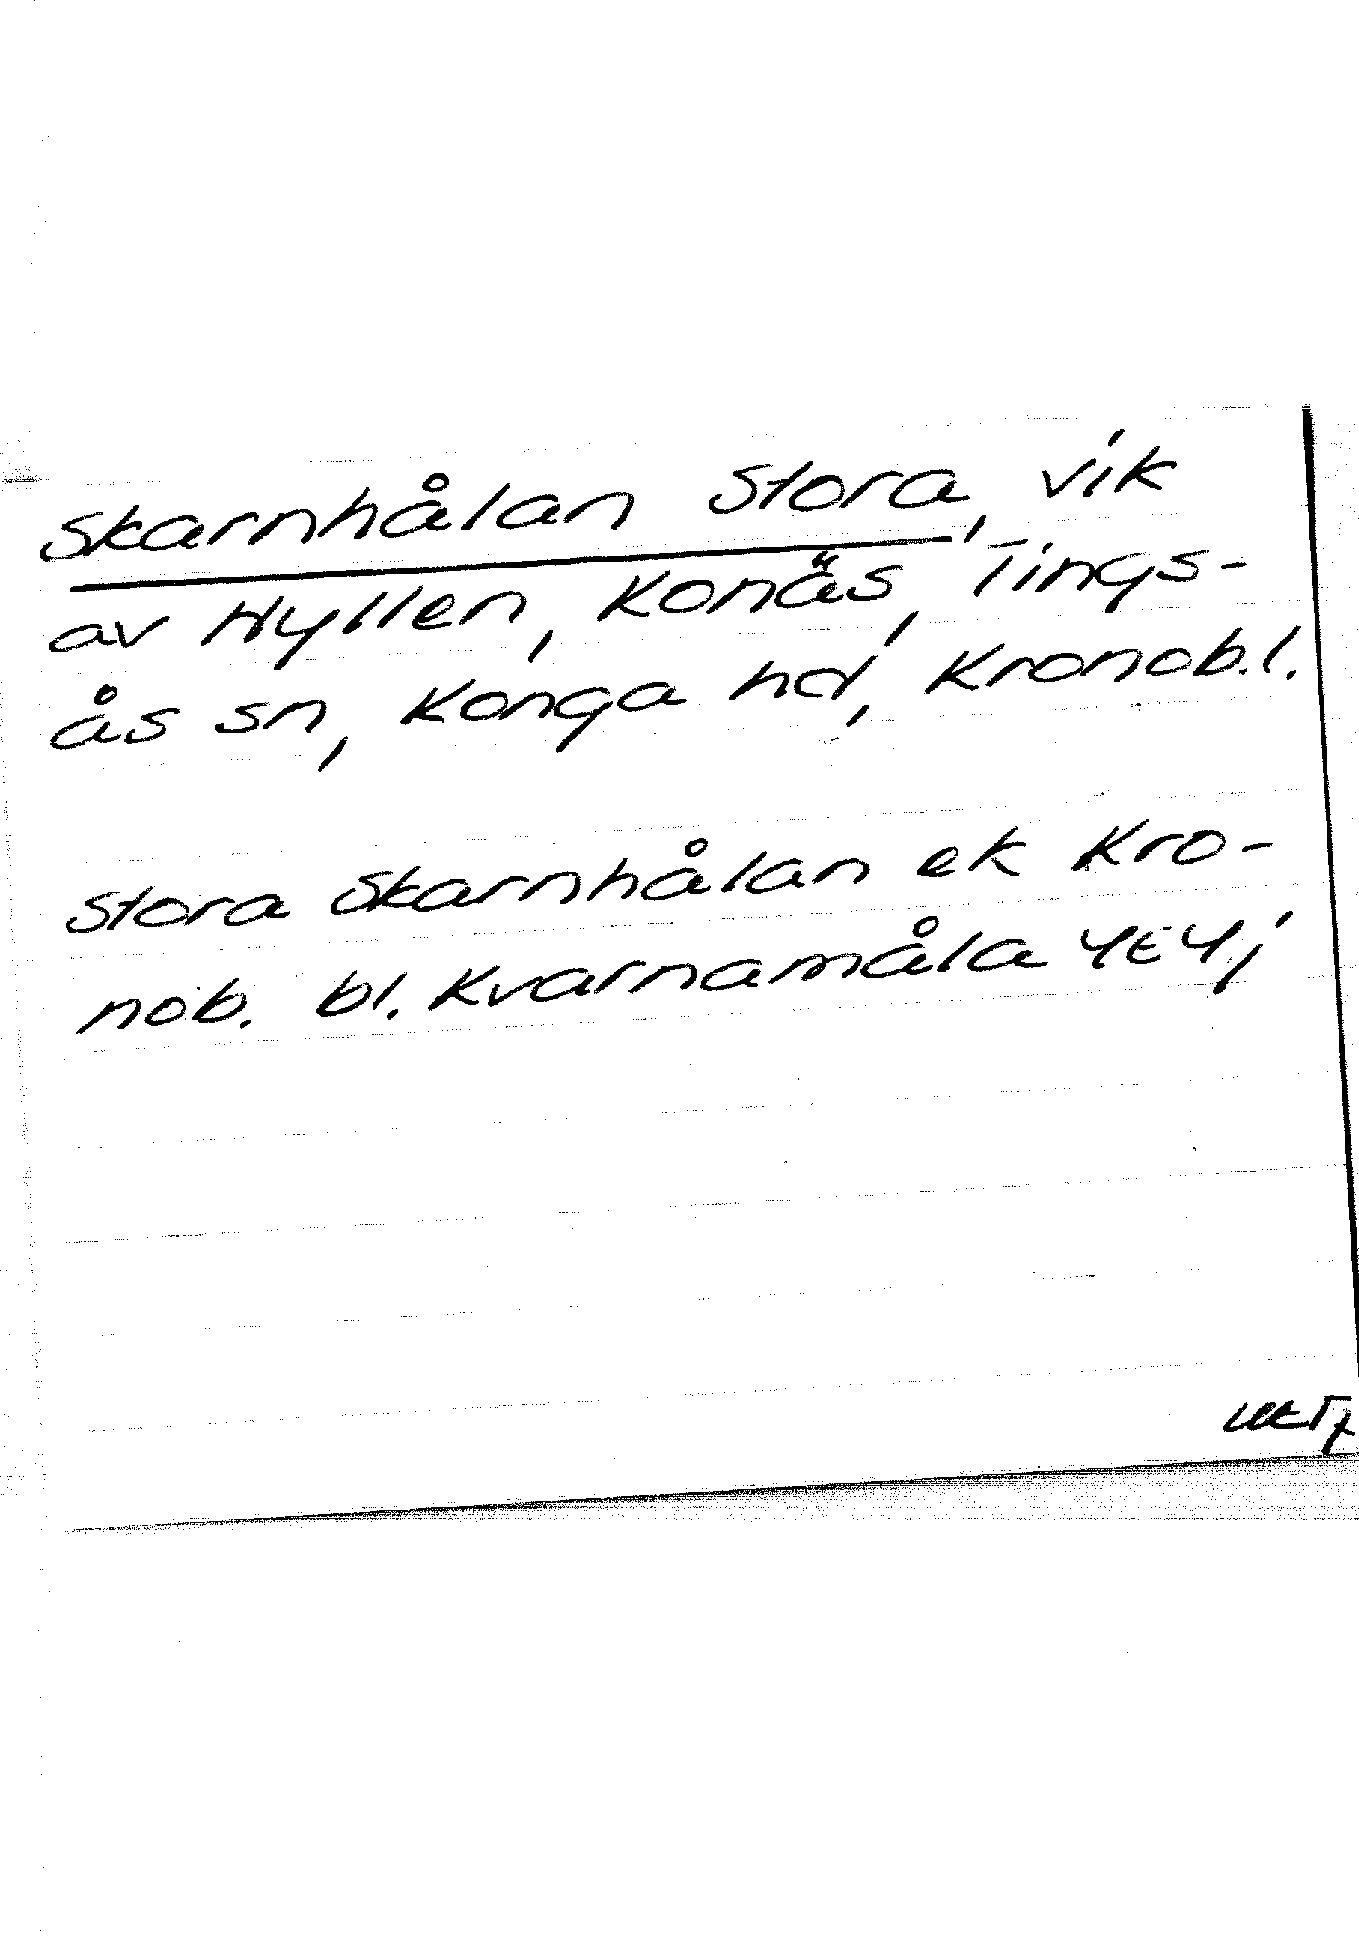 Skarnhålan Stora, vik
av Hyllen, Konäs, Tings-
ås sn, Konga hd, Kronob.l.
Stora Skarnhålan ek Kro-
nob. bl. Kvarnamåla 4E4j